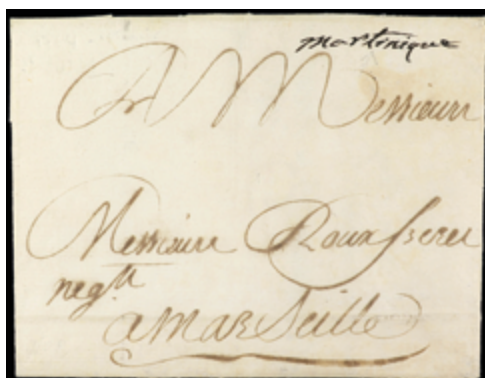 Martinique
A Messieurs
Messieurs Roux freres
neg.ts
a marseille